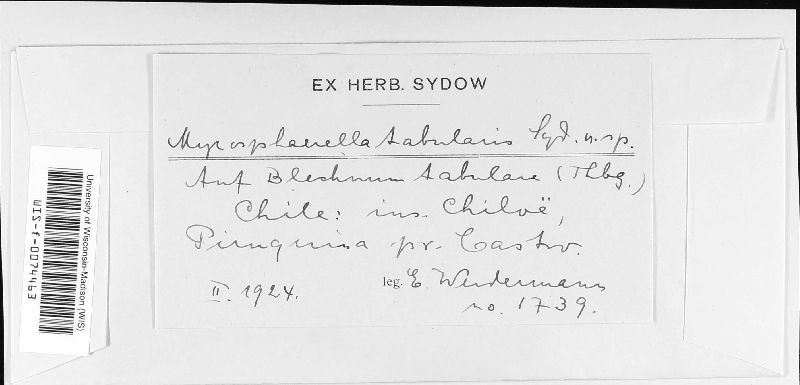 EX HERB. SYDOW
Mycosphaerella tabularis Syd. n. sp.
Auf Blechnum tabulare (Thbg.)
Chile: ins. Chiloë,
Piruquina pr. Castro.
II. 1924.
leg. E. Werdermann
no. 1739.
University of Wisconsin-Madison (WIS)
WIS-f-0074463